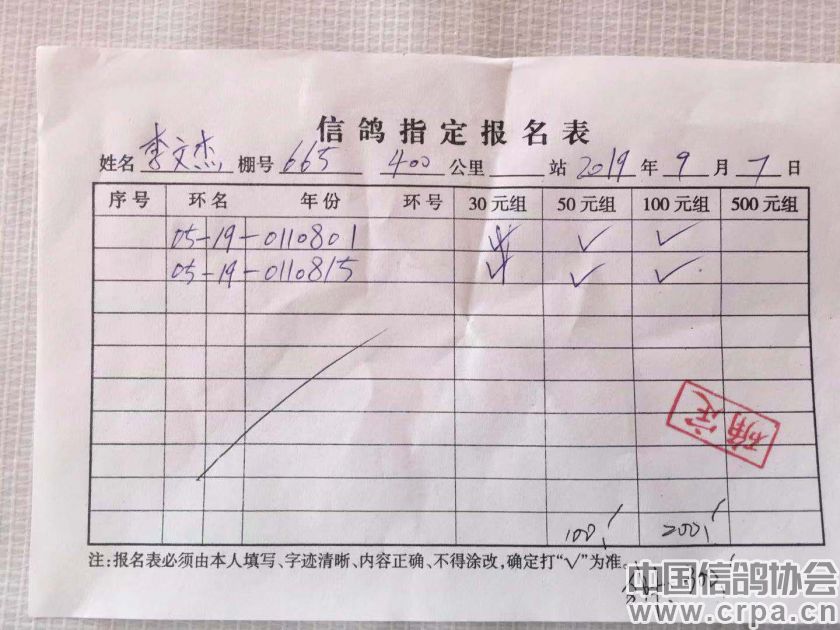 信鸽指定报名表
姓名 李文杰 棚号 665 400 公里 站 2019 年 9 月 7 日
序号 环名 年份 环号 30元组 50元组 100元组 500元组
05-19-0110801 √ √ √
05-19-0110815 √ √ √
确定
100 200
注:报名表必须由本人填写、字迹清晰、内容正确、不得涂改,确定打“√”为准。
300
中国信鸽协会
www.crpa.cn